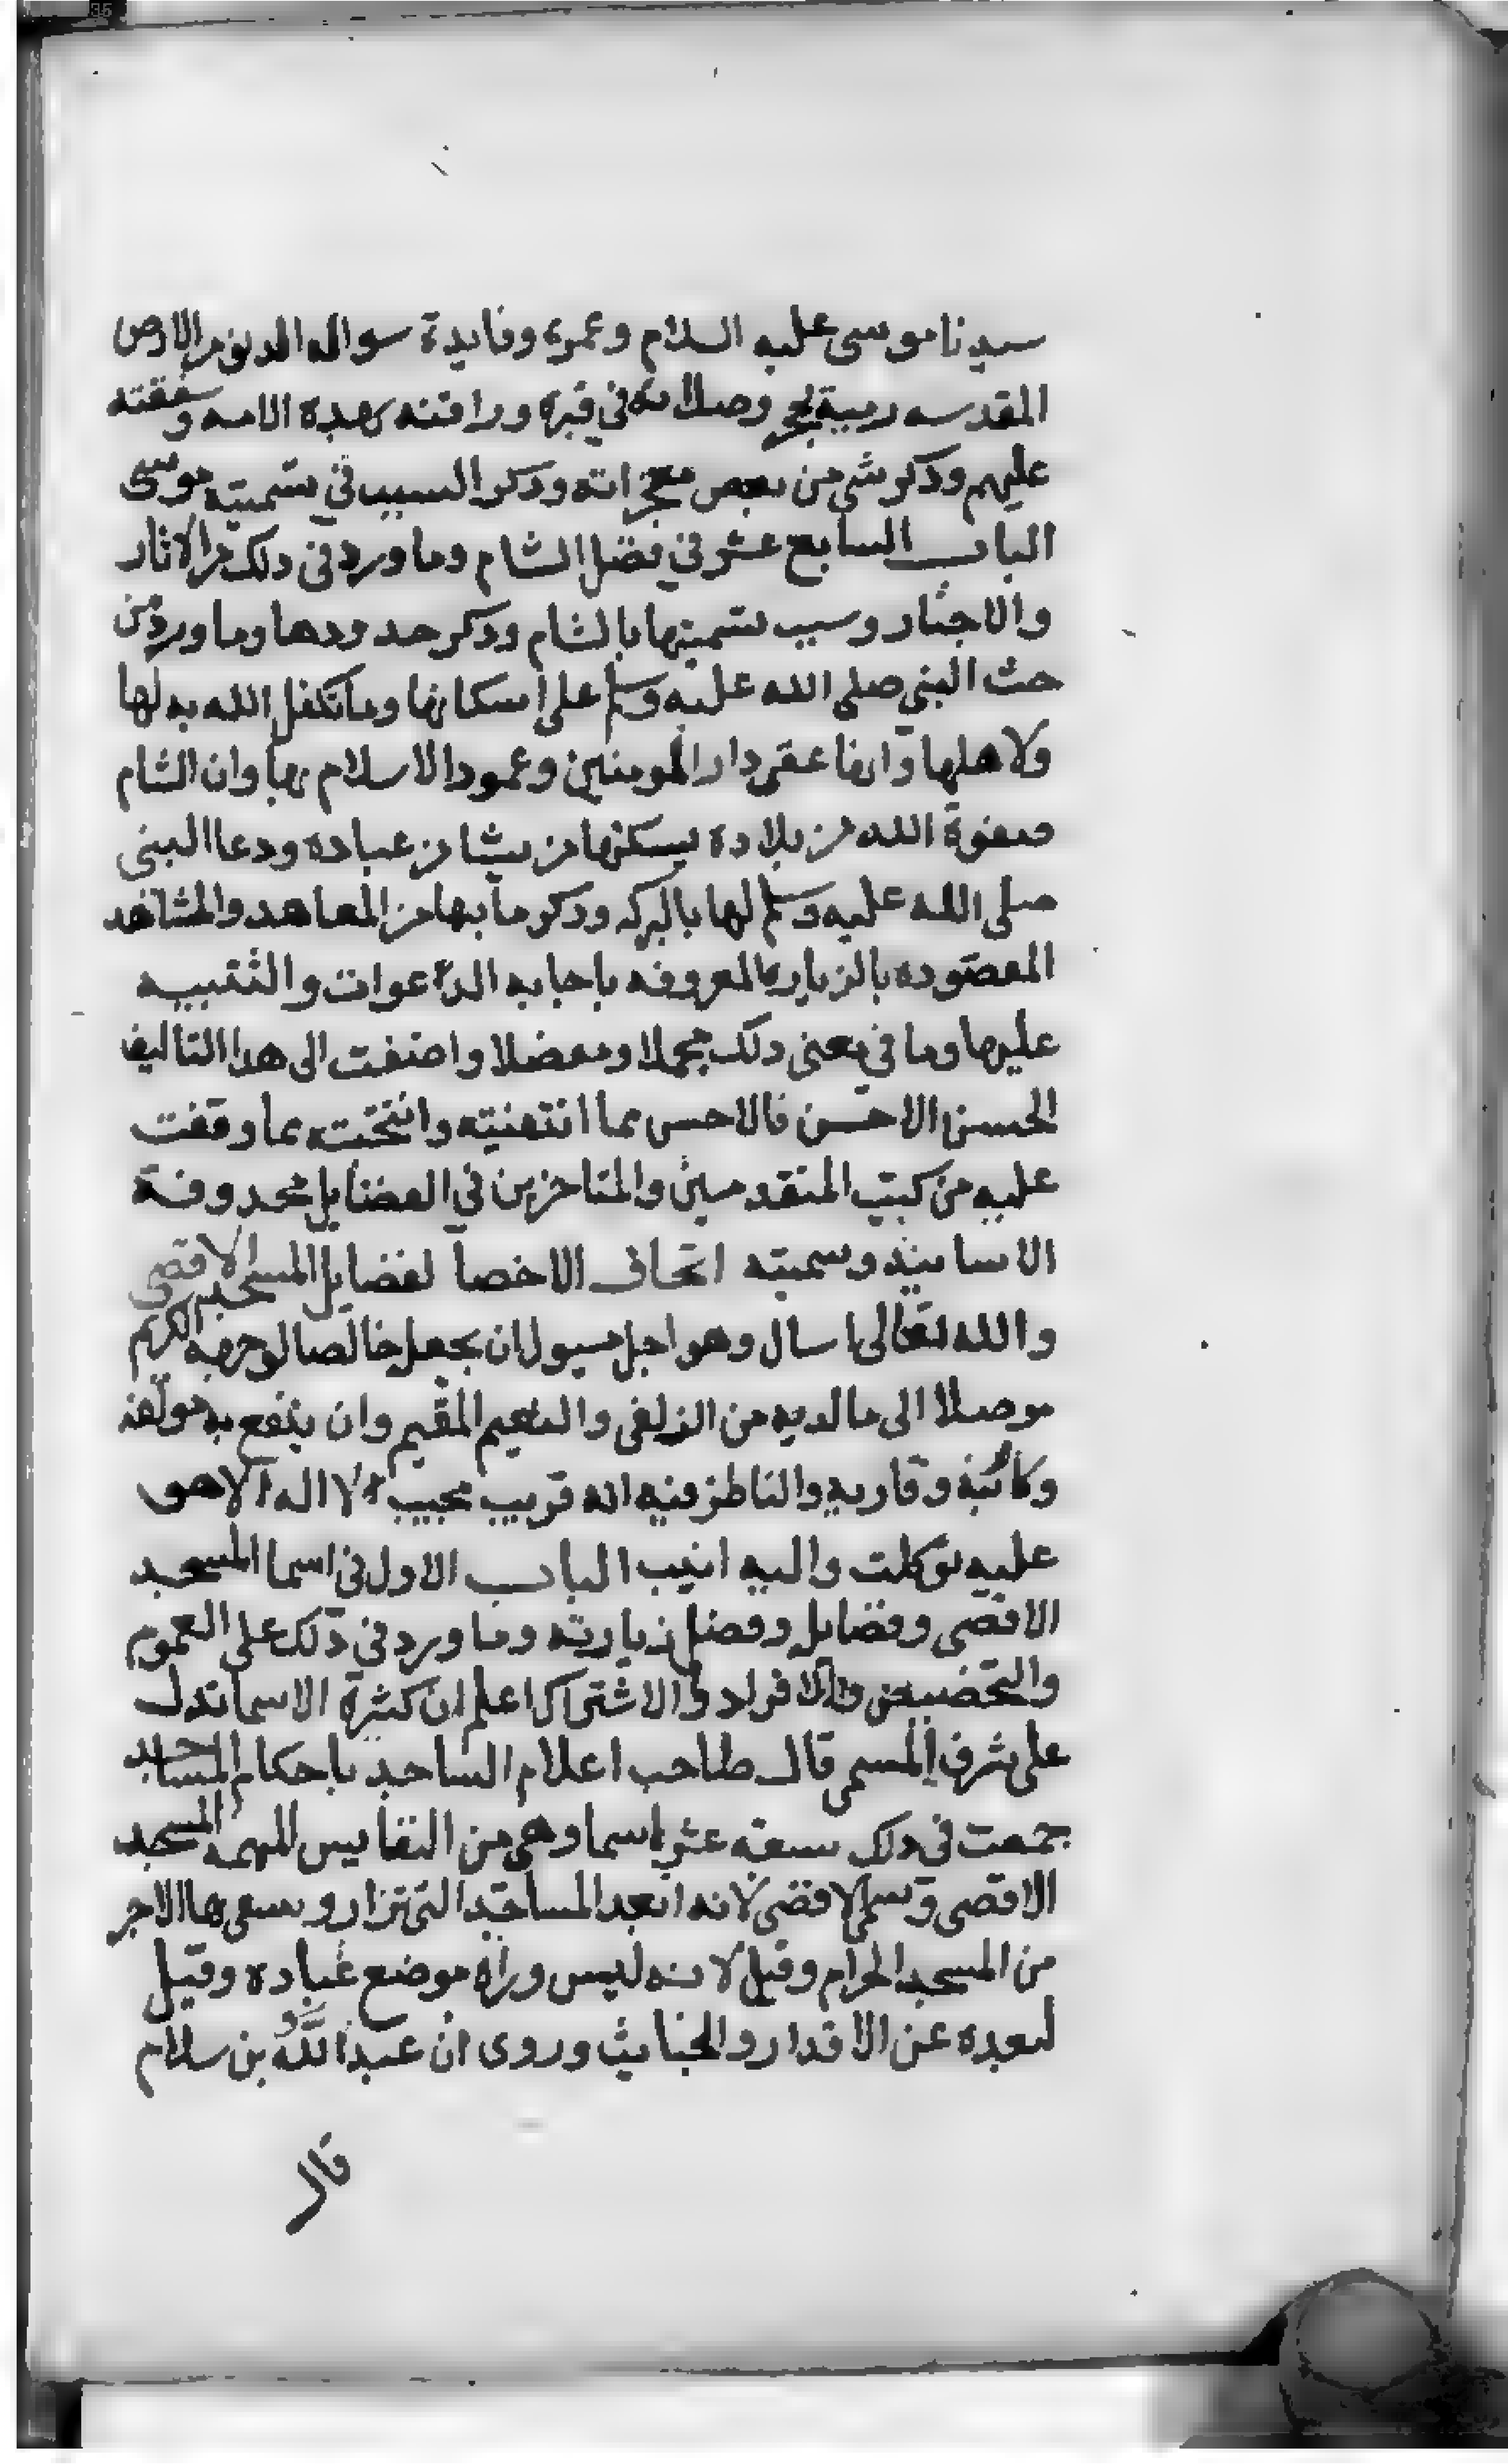 سيدنا موسى عليه السلام وعمره وفايدة سواله الدنو من الارض
المقدسه رمية بحجر وصلاته في قبره ورافته بهده الامه وشفقته
عليهم ودكر شي من بعض معجزاته ودكر السبب في تسميته موسى
الباب السابع عشر في فضل الشام وما ورد في دلك من الاثار
والاخبار وسبب تسميتها بالشام ودكر حدودها وما ورد من
حث النبي صلى الله عليه وسلم على اسكانها وما تكفل الله به لها
ولاهلها وانها عقر دار المومنين وعمود الاسلام بها وان الشام
صفوة الله من بلاده يسكنها من يشا من عباده ودعا النبي
صلى الله عليه وسلم لها بالبركه ودكر ما بها من المعاهد والمشاهد
المقصوده بالزياره المعروفه باجابه الدعوات والتنبيه
عليها وما في معنى دلك مجملا ومفصلا واضفت الى هدا التاليف
الحسن الاحسن فالاحسن مما انتقيته وانتخبته مما وقفت
عليه من كتب المتقدمين والمتاخرين في الفضايل محدوفة
الاسانيد وسميته اتحاف الاخصا لفضايل المسجد الاقصى
والله تعالى اسال وهو اجل مسيول ان يجعل خالصا لوجهه الكريم
موصلا الى ما لديه من الزلفى والنعيم المقيم وان ينفع به مولفه
وكاتبه وقاريه والناظر فيه انه قريب مجيب لا اله الا هو
عليه توكلت واليه انيب الباب الاول في اسما المسجد
الاقصى وفضايله وفضل زيارته وما ورد في دلك على العموم
والتخصيص والافراد والاشتراك اعلم ان كثرة الاسما تدل
على شرف المسمى قال طاحب اعلام الساجد باحكام المساجد
جمعت في دلك سبعة عشر اسما وهي من النفايس المهمه المسجد
الاقصى وسمي الاقصى لانه ابعد المساجد التي تزار ويبتغى بها الاجر
من المسجد الحرام وقيل لانه ليس وراه موضع عباده وقيل
لبعده عن الاقدار والخبايث وروى ان عبد الله بن سلام
قال